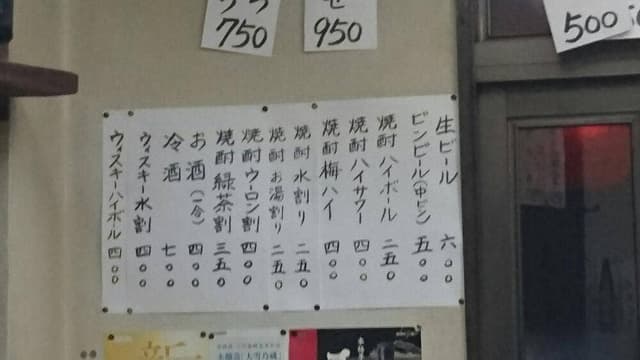 750
950
500
生ビール 六〇〇
ビンビール(中ビン) 五〇〇
焼酎ハイボール 二五〇
焼酎ハイサワー 四〇〇
焼酎梅ハイ 四〇〇
焼酎水割り 二五〇
焼酎お湯割り 二五〇
焼酎ウーロン割 四〇〇
焼酎緑茶割 三五〇
お酒(一合) 四〇〇
冷酒 七〇〇
ウィスキー水割 四〇〇
ウィスキーハイボール 四〇〇
本醸造「大雪乃蔵」